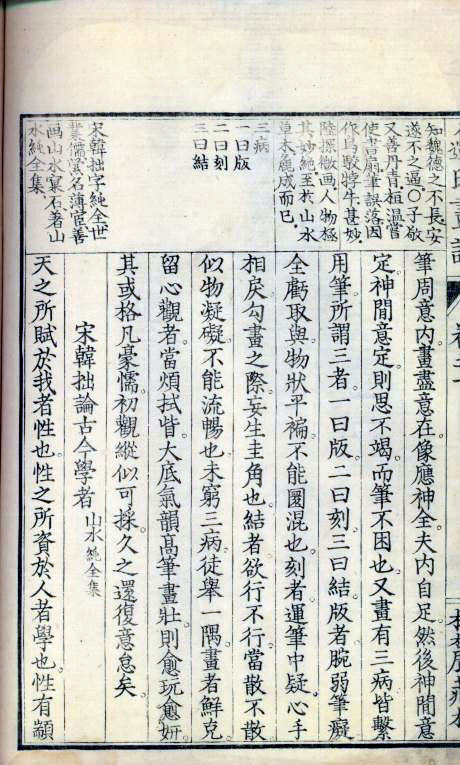 知魏德之不長安
遂不之逼。〇子敬
又善丹青桓溫嘗
使書扇筆誤落因
作烏駮牸牛甚妙。
陸探微画人物極
其妙絶至於山水
草木麁成而已。
三病
一曰版
二曰刻
三曰結
宋韓拙字純全世
業儒雲名薄宦善
画山水窠石著山
水純全集
筆周意内。畫盡意在。像應神全。夫内自足。然後神閒意
定。神閒意定。則思不竭。而筆不困也。又畫有三病。皆繫
用筆。所謂三者。一曰版。二曰刻。三曰結。版者腕弱筆癡。
全虧取與。物狀平褊。不能圜混也。刻者運筆中疑。心手
相戾。勾畫之際。妄生圭角也。結者欲行不行。當散不散。
似物凝礙。不能流暢也。未窮三病。徒舉一隅。畫者鮮克
留心。觀者當煩拭眥。大底氣韻高筆畫壯。則愈玩愈妍。
其或格凡毫懦。初觀縱似可採。久之還復意怠矣。
宋韓拙論古今學者 山水純全集
天之所賦於我者性也。性之所資於人者學也。性有顓